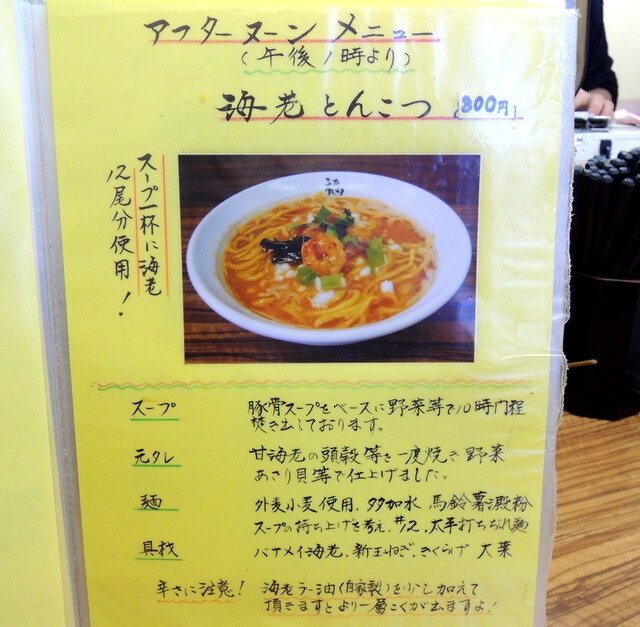 アフターヌーン メニュー
(午後1時より)
海老とんこつ 800円
スープ一杯に海老
12尾分使用!
スープ 豚骨スープをベースに野菜等で10時間程
焚き出しております。
元タレ 甘海老の頭殻等を一度焼き野菜
あさり貝等で仕上げました。
麺 外麦小麦使用、多加水 馬鈴薯澱粉
スープの持ち上げを考え、#12、太平打ちぢれ麺
具材 バナメイ海老、新玉ねぎ、きくらげ 大葉
辛さに注意! 海老ラー油(自家製)を少し加えて
頂きますとより一層こくが出ますよ!